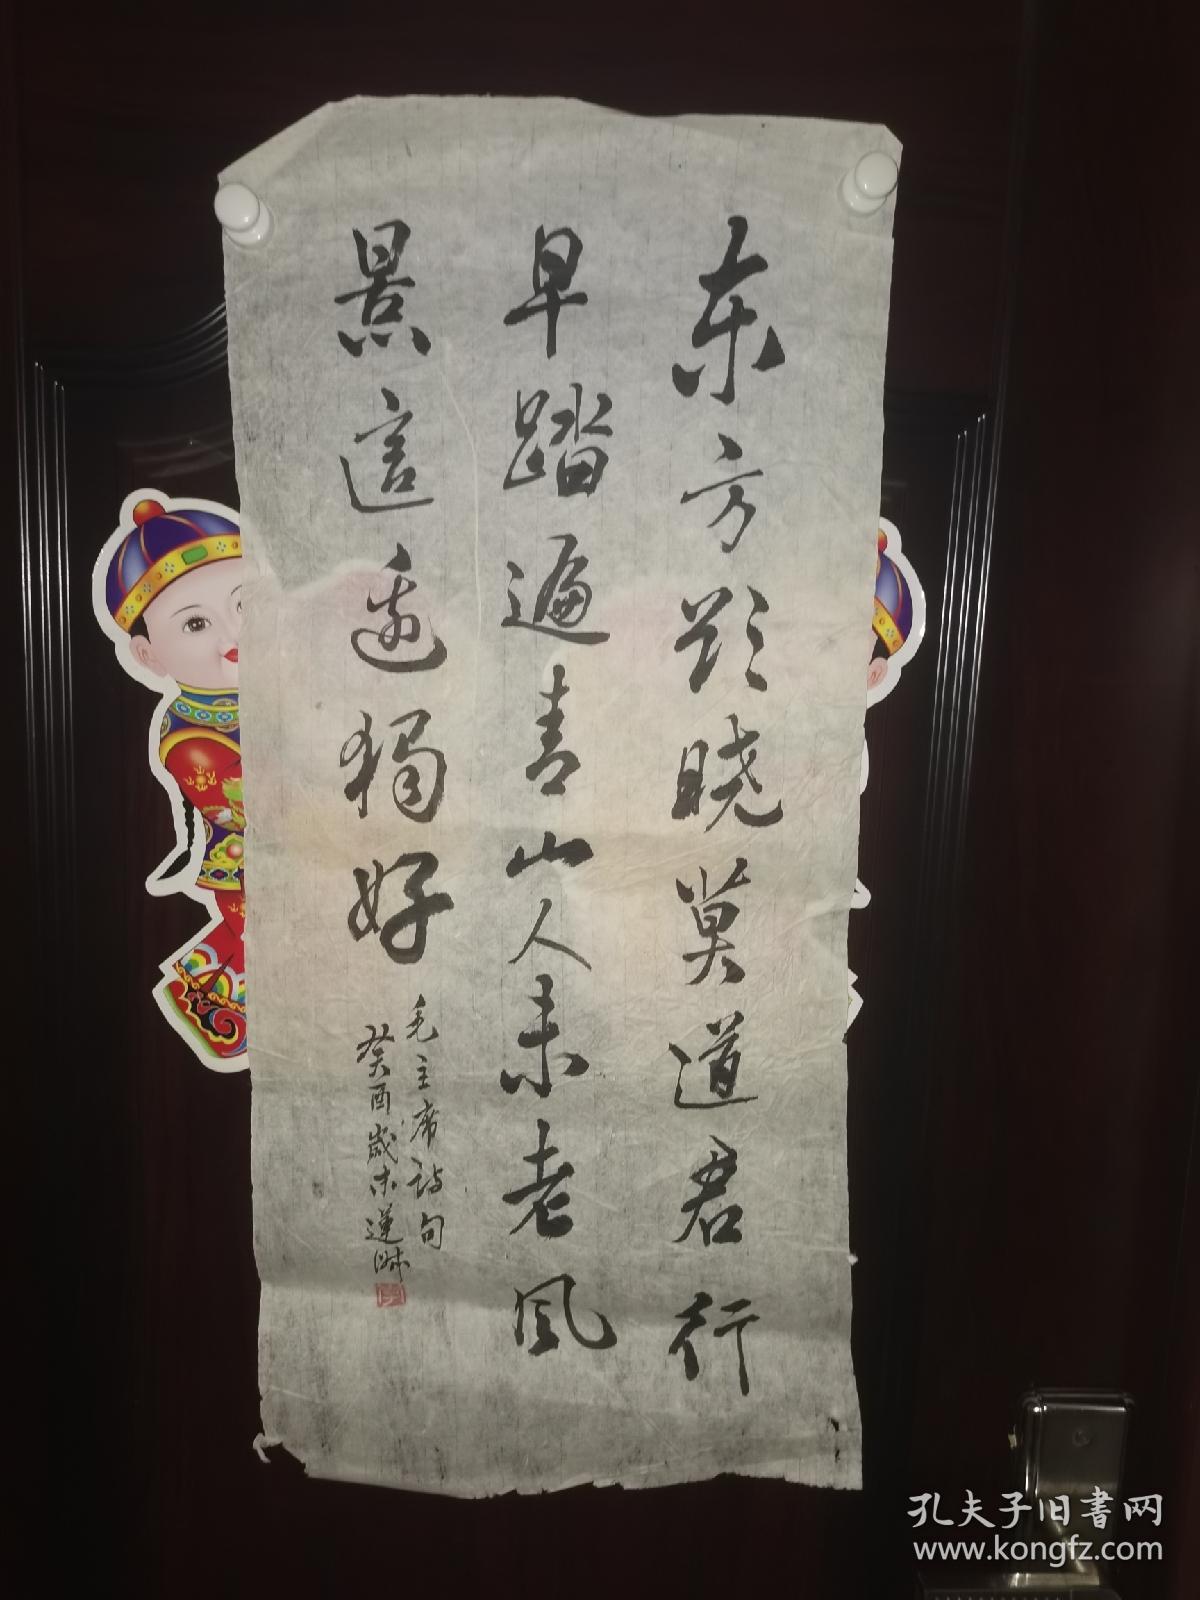 东方欲晓莫道君行
早踏遍青山人未老风
景這边獨好
毛主席诗句
癸酉歲朱蓬
孔夫子旧書网
www.kongfz.com